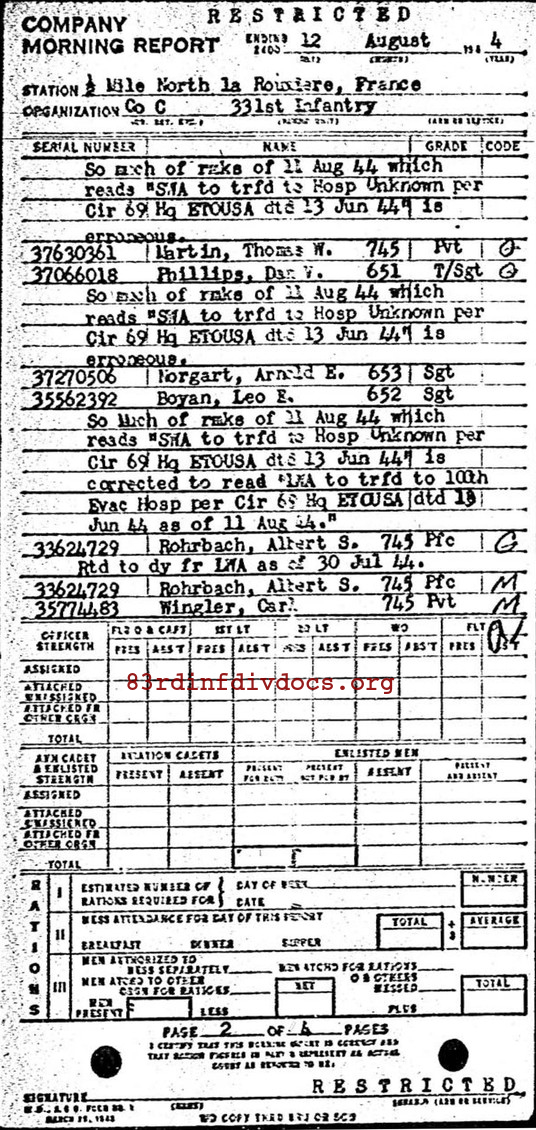 RESTRICTED
COMPANY
MORNING REPORT ENDING 2400 12 August 194 4
(DAY) (MONTH) (YEAR)
STATION ½ Mile North la Rouxiere, France
ORGANIZATION Co C 331st Infantry
SERIAL NUMBER NAME GRADE CODE
So much of rmks of 11 Aug 44 which
reads "SWA to trfd to Hosp Unknown per
Cir 69 Hq ETOUSA dtd 13 Jun 44" is
erroneous.
37630361 Martin, Thomas W. 745 Pvt
37066018 Phillips, Dan V. 651 T/Sgt
So much of rmks of 11 Aug 44 which
reads "SWA to trfd to Hosp Unknown per
Cir 69 Hq ETOUSA dtd 13 Jun 44" is
erroneous.
37270506 Norgart, Arnold E. 653 Sgt
35562392 Boyan, Leo E. 652 Sgt
So Much of rmks of 11 Aug 44 which
reads "SWA to trfd to Hosp Unknown per
Cir 69 Hq ETOUSA dtd 13 Jun 44" is
corrected to read "LWA to trfd to 10th
Evac Hosp per Cir 69 Hq ETOUSA dtd 13
Jun 44 as of 11 Aug 44."
33624729 Rohrbach, Albert S. 745 Pfc G
Rtd to dy fr LWA as of 30 Jul 44.
33624729 Rohrbach, Albert S. 745 Pfc M
35774483 Wingler, Carl 745 Pvt M
OFFICER STRENGTH FLD O & CAPT 1ST LT 2D LT WO FLT
PRES ABS'T PRES ABS'T PRES ABS'T PRES ABS'T PRES
ASSIGNED
83rdinfdivdocs.org
ATTACHED UNASSIGNED
ATTACHED FR OTHER ORGN
TOTAL
AVN CADET & ENLISTED STRENGTH AVIATION CADETS ENLISTED MEN
PRESENT ABSENT PRESENT FOR DUTY PRESENT NOT FOR DY ABSENT PRESENT AND ABSENT
ASSIGNED
ATTACHED UNASSIGNED
ATTACHED FR OTHER ORGN
TOTAL
RATIONS
I ESTIMATED NUMBER OF RATIONS REQUIRED FOR DAY OF WEEK DATE NUMBER
II MESS ATTENDANCE FOR DAY OF THIS REPORT TOTAL ÷ 3 AVERAGE
BREAKFAST DINNER SUPPER
III MEN AUTHORIZED TO MESS SEPARATELY MEN ATCHD FOR RATIONS
MEN ATCHD TO OTHER ORGN FOR RATIONS NET O R OTHERS MESSED TOTAL
MEN PRESENT LESS PLUS
PAGE 2 OF 4 PAGES
I CERTIFY THAT THIS MORNING REPORT IS CORRECT AND
RESTRICTED
SIGNATURE
MARCH 23, 1943
WD COPY THRU MRU OR SCU